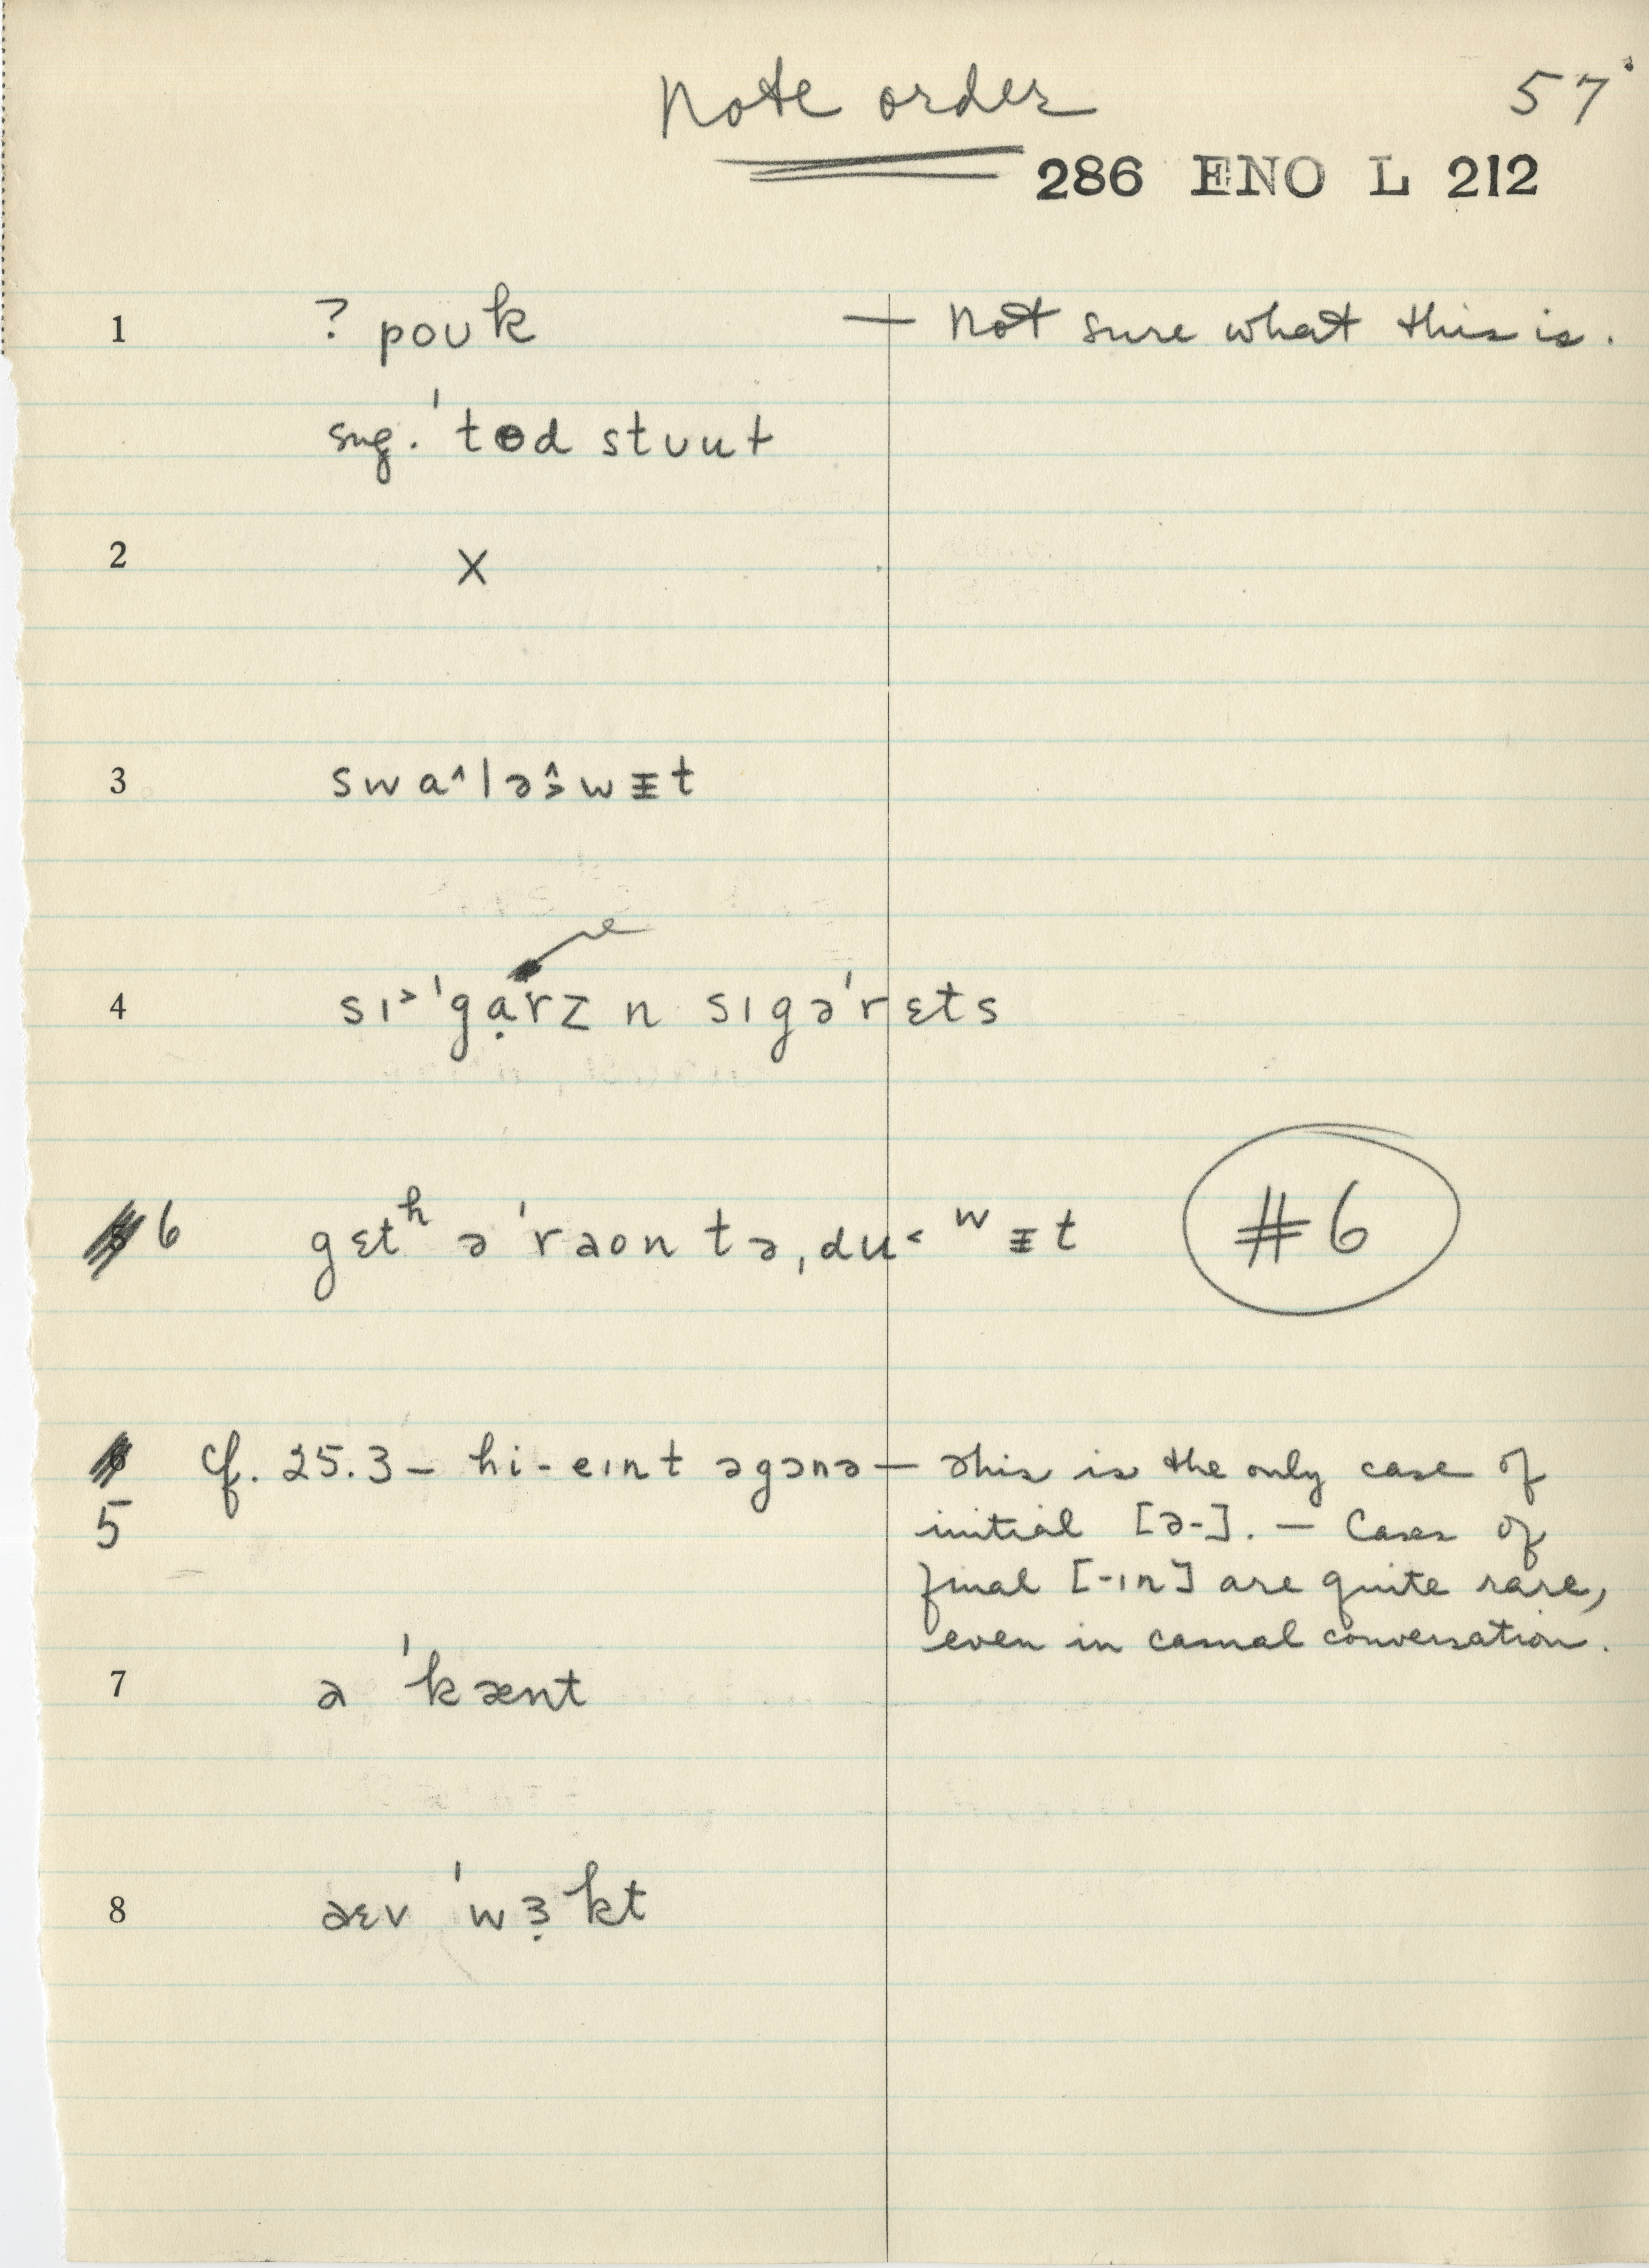 Note order
57
286 ENO L 212
1 ? poʊk — Not sure what this is.
sug. ˈtod stʊut
2 X
3 swɑ^lə wᵻt
4 sɪ˃ˈgạrz n sɪgəˈrɛts
6 gɛtʰ əˈraʊn tə ˌdu˂ ʷᵻt #6
5 cf. 25.3 – hi - eɪnt əgɔnə — This is the only case of
initial [ə-]. — Cases of
final [-ɪn] are quite rare,
even in casual conversation.
7 ə ˈkænt
8 əɛv ˈwɜ̣kt